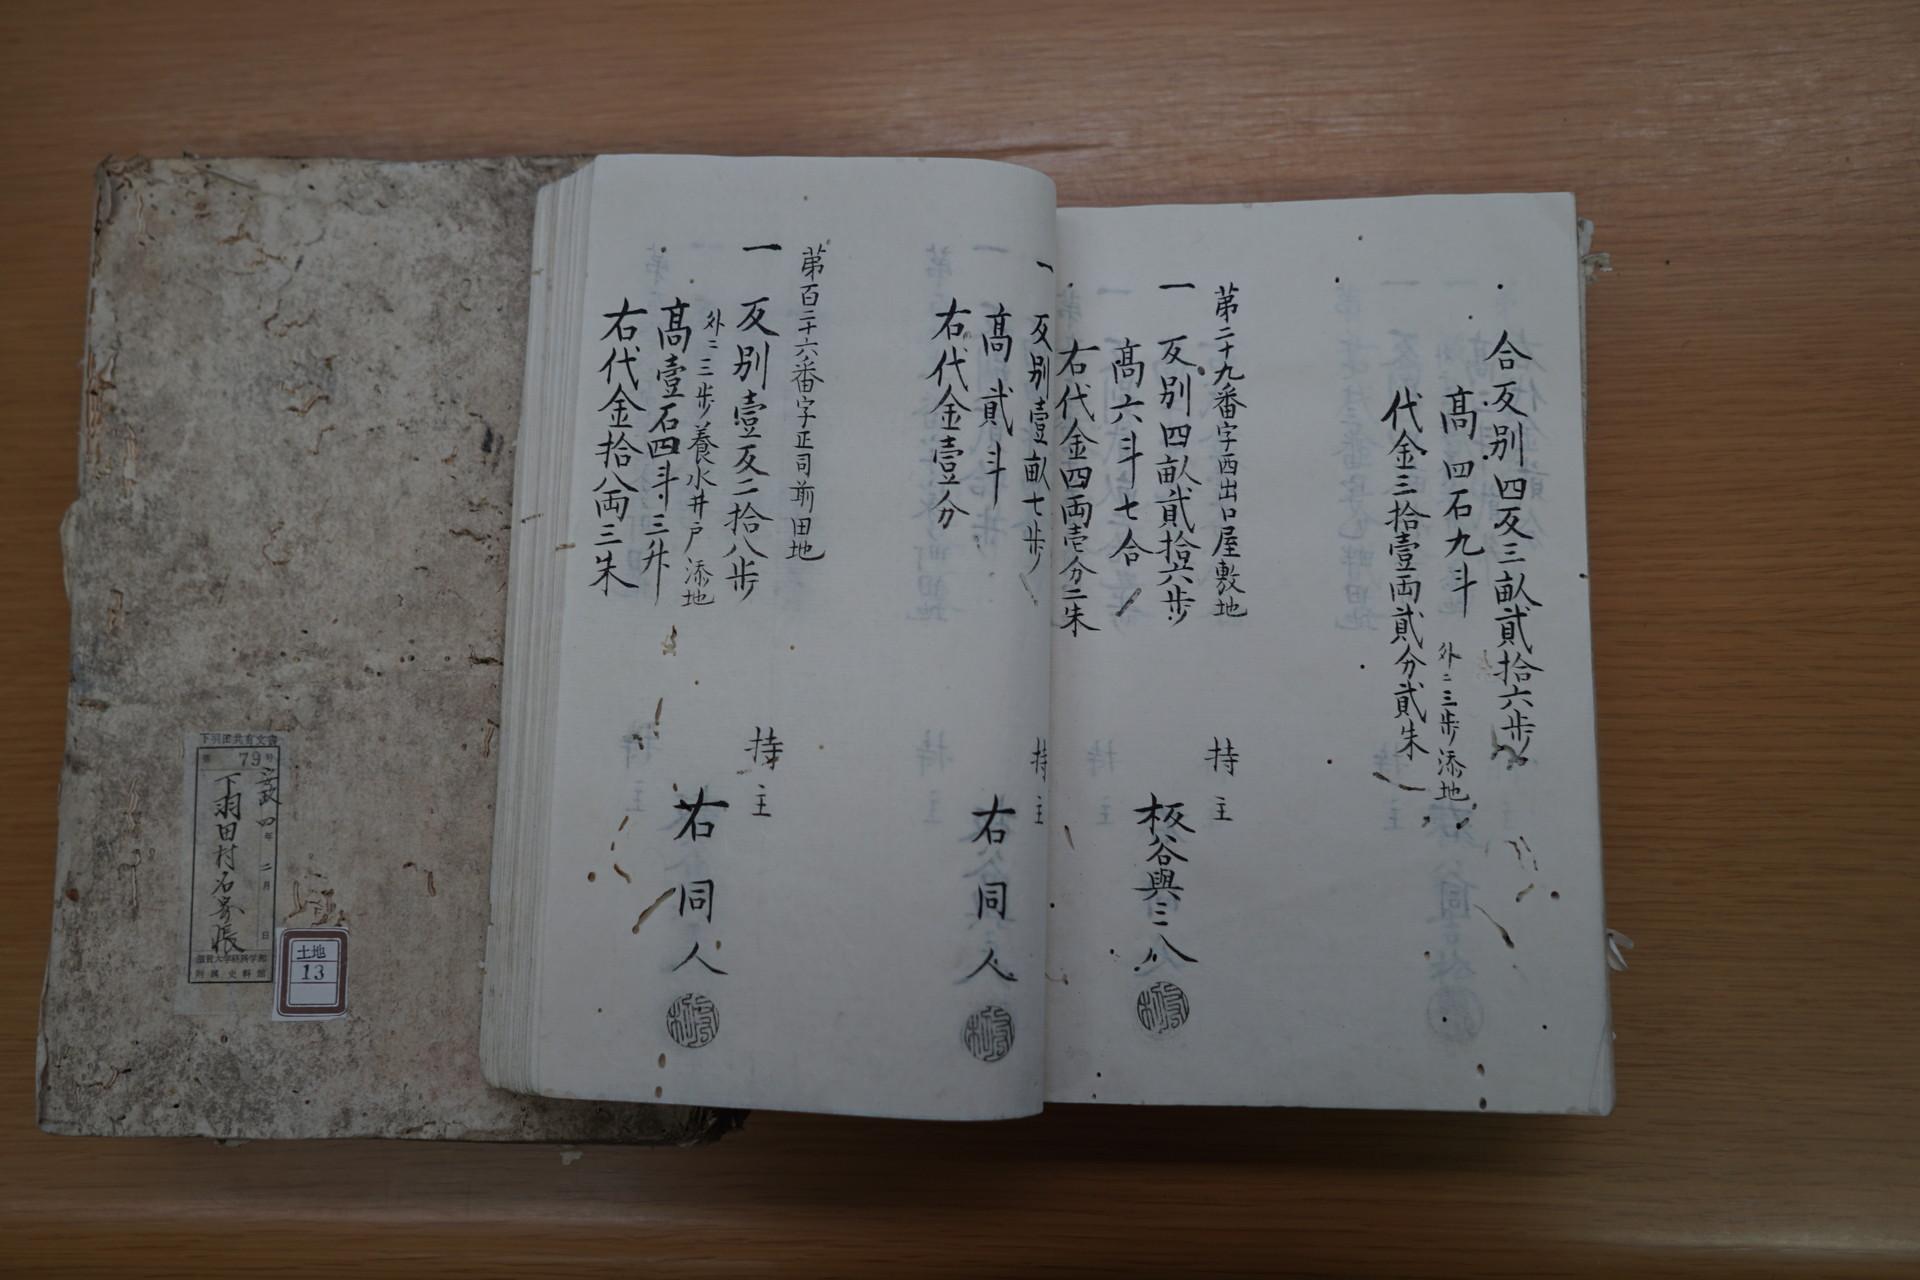 合反別四反三畝貳拾六歩
高四石九斗
外ニ三歩添地
代金三拾壹両貳分貳朱
第二十九番字西出口屋敷地
一 反別四畝貳拾六歩
持主
高六斗七合
板谷與三八
右代金四両壱分二朱
一 反別壹畝七歩
持主
高貳斗
右同人
右代金壹分
第百二十六番字正司前田地
一 反別壹反二拾八歩
持主
外ニ三歩養水井戸添地
高壹石四斗三升
右同人
右代金拾八両三朱
下羽田共有文書
第79号
安政四年二月日
下羽田村名寄帳
滋賀大学経済学部
附属史料館
土地
13